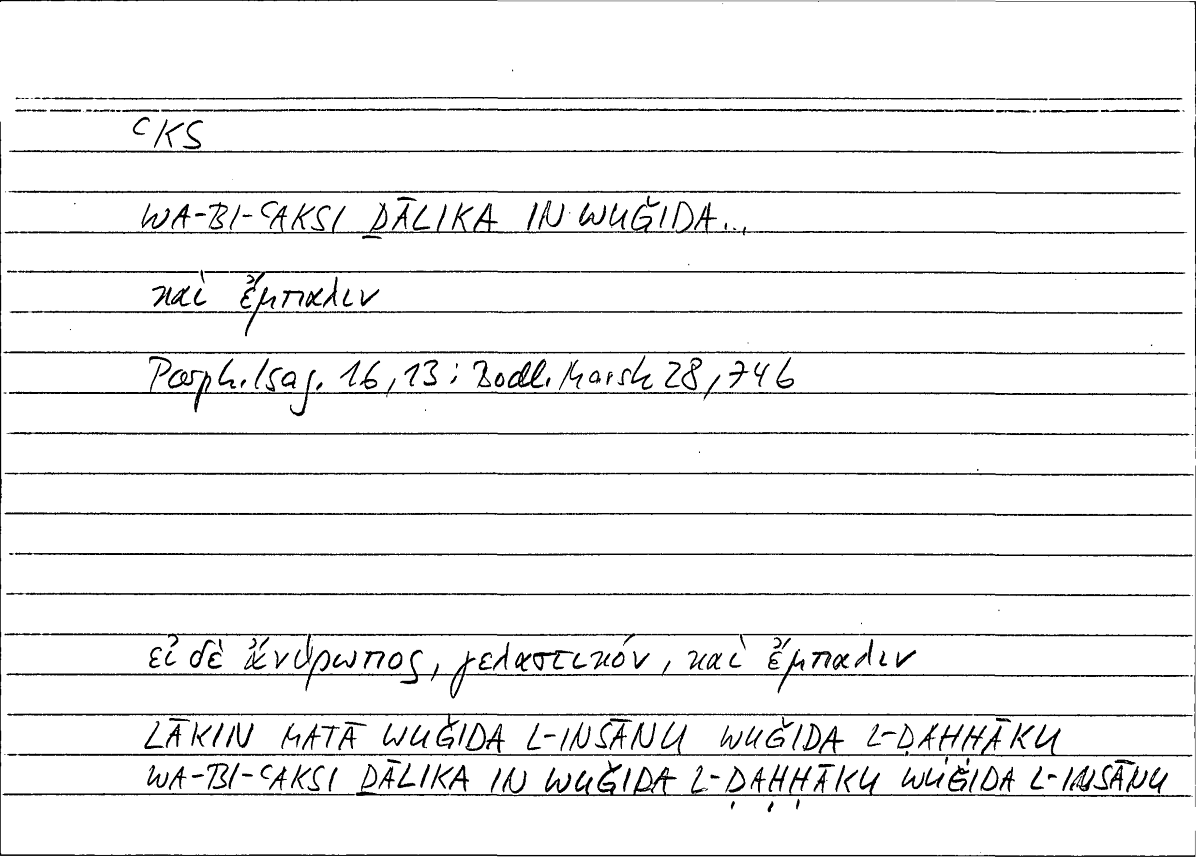 ᶜKS
WA-BI-ᶜAKSI ḎĀLIKA IN WUǦIDA...
καὶ ἔμπαλιν
Porph. Isag. 16,13 : Bodl. Marsh 28,746
εἰ δὲ ἄνθρωπος, γελαστικόν, καὶ ἔμπαλιν
LĀKIN MATĀ WUǦIDA L-INSĀNU WUǦIDA L-ḌAḤḤĀKU
WA-BI-ᶜAKSI ḎĀLIKA IN WUǦIDA L-ḌAḤḤĀKU WUǦIDA L-INSĀNU